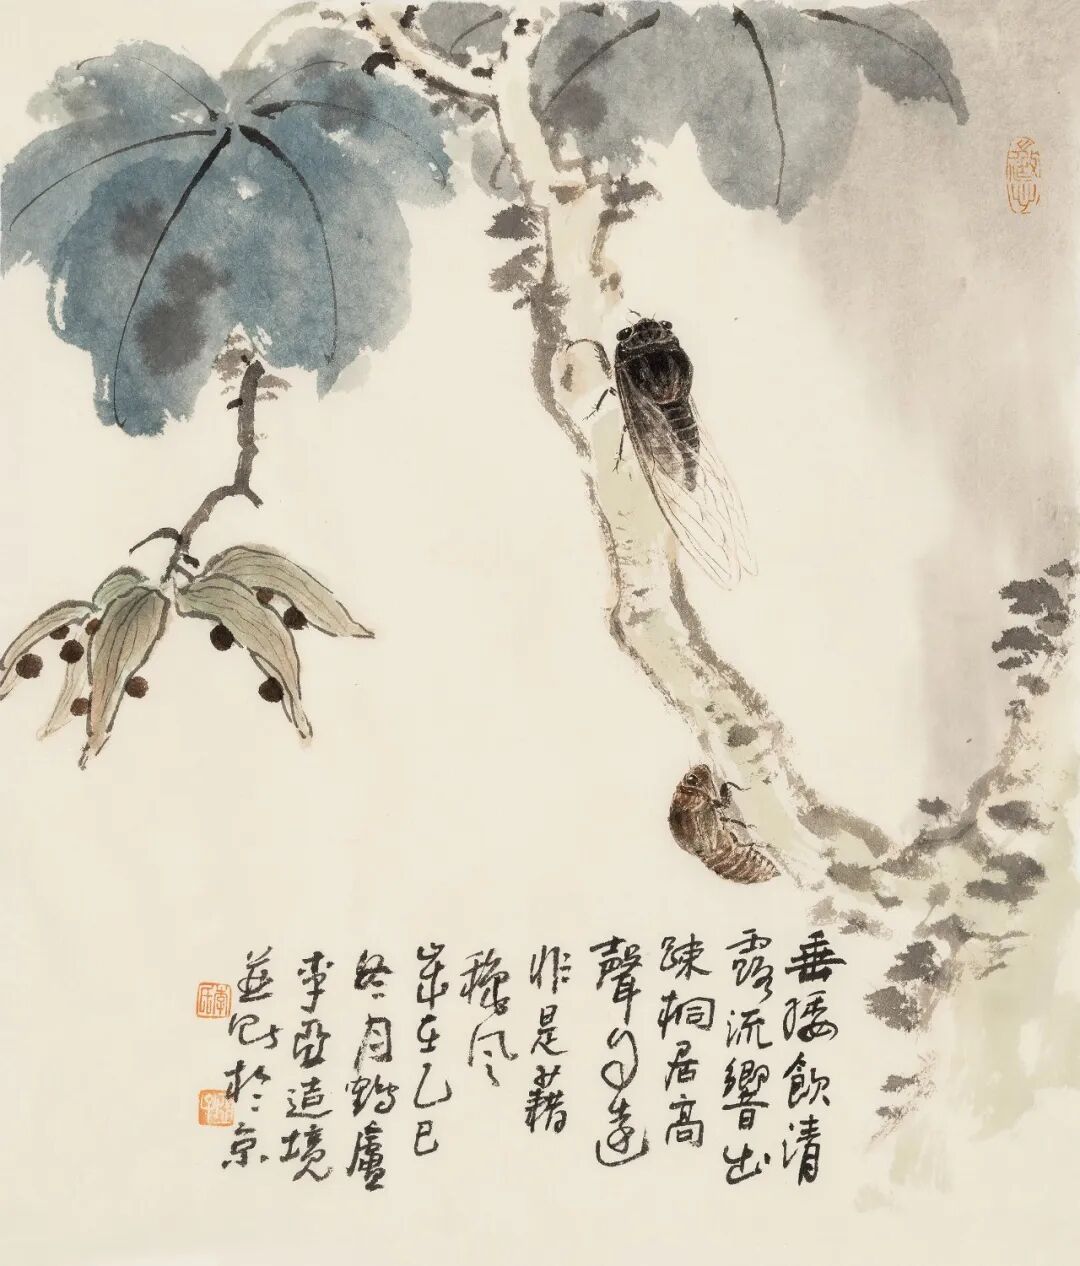 垂緌飲清
露流響出
踈桐居高
聲自遠
非是藉
穐風
歲在乙巳
冬月鶴廬
李亞造境
並記於京